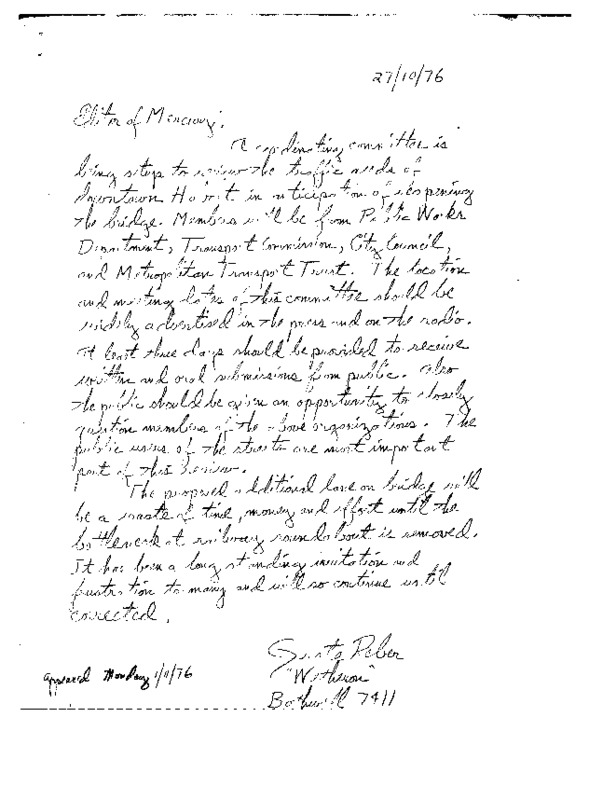 27/10/76
Editor of Mercury.
A coordinating committee is
being setup to review the traffic needs of
downtown Hobart in anticipation of reopening
the bridge. Members will be from Public Works
Department, Transport Commission, City Council,
and Metropolitan Transport Trust. The location
and meeting dates of this committee should be
widely advertised in the press and on the radio.
At least three days should be provided to receive
written and oral submissions from public. Also
the public should be given an opportunity to closely
question members of the above organizations. The
public users of the streets are most important
part of this review.
The proposed additional lane on bridge will
be a waste of time, money and effort until the
bottleneck at railway roundabout is removed.
It has been a long standing irritation and
frustration to many and will so continue until
corrected.
Reber
Bothwell 7411
Appeared Monday 1/11/76